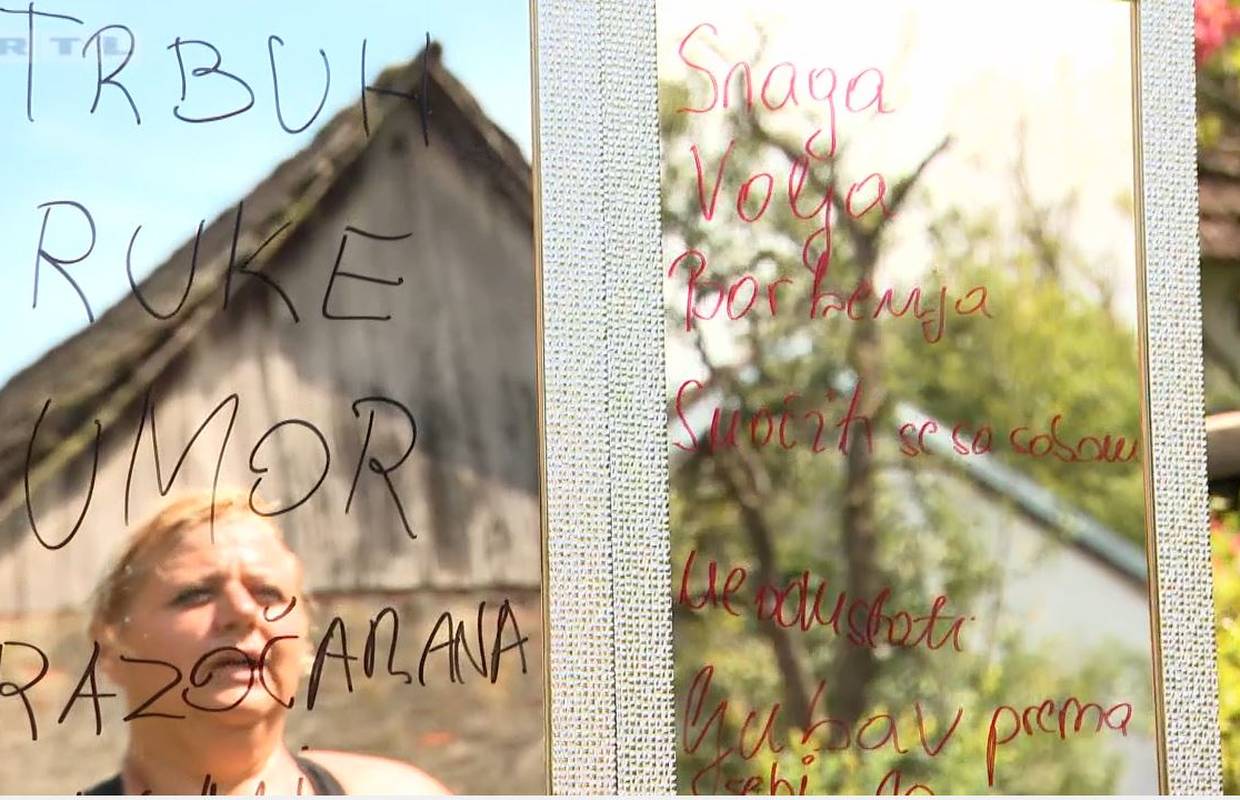 RTL
TRBUH
RUKE
UMOR
RAZOČARANA
Snaga
Volja
Borbenija
Suočiti se sa sobom
Ne odustati
Ljubav prema
sebi